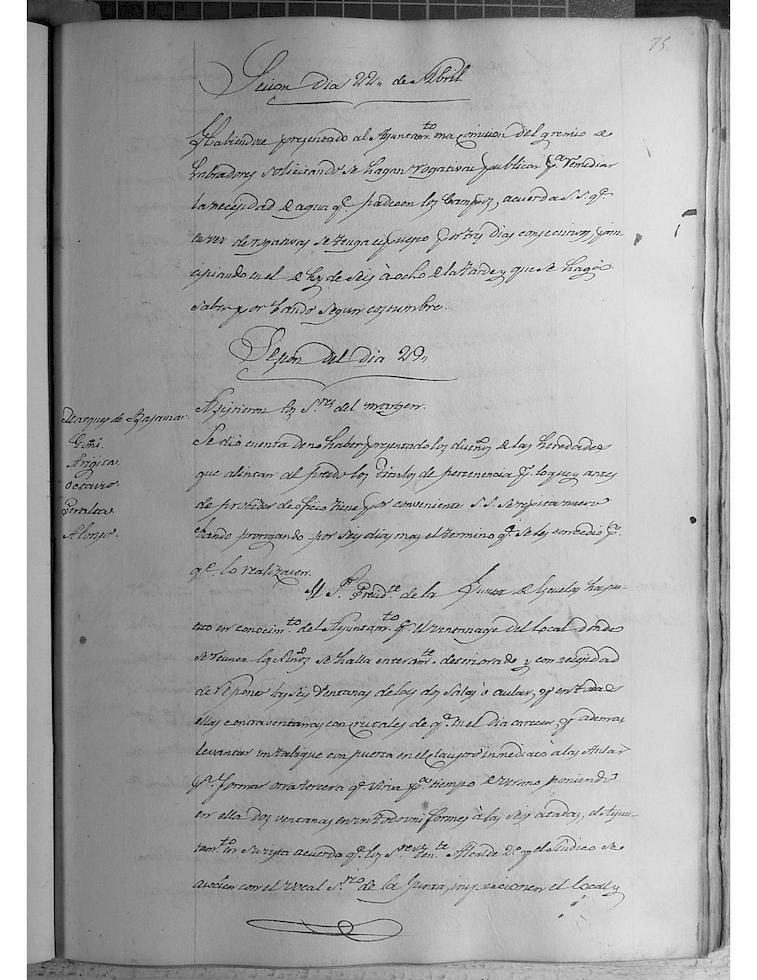 75.
Sesion dia 22,, de Abril
Habiendose presentado al Ayuntam.to una comision del gremio de
Labradores solicitando se hagan rogativas publicas p.a remediar
la necesidad de agua q.e padecen los campos, acuerda S.S. q.e
de rogativas se tenga espuesto por tres dias consecutivos, prin
cipiando en el de hoy de seis à ocho de la tarde y que se haga
saber por bando segun costumbre.
Sesion del dia 29,,
Marques de Bajamar.
Goñi.
Octavio.
Peralta.
Alonso.
Asistieron los S.res del margen.
Se dió cuenta de no haber presentado los dueños de las heredades
que alindan al prado los titulos de pertenencia p.r lo que y antes
de proceder de oficio tiene por conveniente S.S. se repita nuevo
bando prorogando por seis dias mas el termino q.e se les concedió p.a
q.e lo realizasen.
El S.r Presid.te de la Junta de Escuelas ha pues-
to en conocim.to del Ayuntam.to q.e el del local donde
se reunen los Niños se halla enteram.te deteriorado y con necesidad
de reponer las seis ventanas de las dos salas ò aulas, y en todas
ellas contraventanas con cristales de q.e en el dia carecen, y ademas
levantar un tabique con puerta en el claustro inmediato à las Aulas
p.a formar otra tercera q.e sirva p.a tiempo de verano poniendo
en ella dos ventanas en un todo uniformes à las seis citadas, el Ayun-
tam.to en su vista acuerda q.e los S.res Ten.te Alcalde 2.o y el Sindico se
asocien con el vocal S.rio de la Junta, inspeccionen el local y